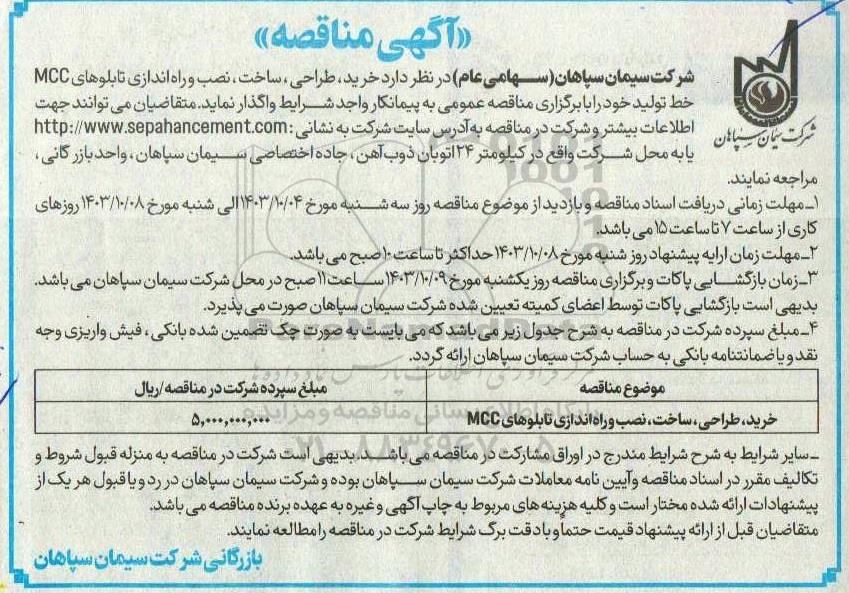 «آگهی مناقصه»
شرکت سیمان سپاهان
شرکت سیمان سپاهان(سهامی عام) در نظر دارد خرید، طراحی، ساخت، نصب و راه اندازی تابلوهای MCC
خط تولید خود را با برگزاری مناقصه عمومی به پیمانکار واجد شرایط واگذار نماید. متقاضیان می توانند جهت
اطلاعات بیشتر و شرکت در مناقصه به آدرس سایت شرکت به نشانی: http://www.sepahancement.com
یا به محل شرکت واقع در کیلومتر ۲۴ اتوبان ذوب آهن، جاده اختصاصی سیمان سپاهان، واحد بازرگانی،
مراجعه نمایند.
۱ـ مهلت زمانی دریافت اسناد مناقصه و بازدید از موضوع مناقصه روز سه شنبه مورخ ۱۴۰۳/۱۰/۰۴ الی شنبه مورخ ۱۴۰۳/۱۰/۰۸ روزهای
کاری از ساعت ۷ تا ساعت ۱۵ می باشد.
۲ـ مهلت زمان ارایه پیشنهاد روز شنبه مورخ ۱۴۰۳/۱۰/۰۸ حداکثر تا ساعت ۱۰ صبح می باشد.
۳ـ زمان بازگشایی پاکات و برگزاری مناقصه روز یکشنبه مورخ ۱۴۰۳/۱۰/۰۹ ساعت ۱۱ صبح در محل شرکت سیمان سپاهان می باشد.
بدیهی است بازگشایی پاکات توسط اعضای کمیته تعیین شده شرکت سیمان سپاهان صورت می پذیرد.
۴ـ مبلغ سپرده شرکت در مناقصه به شرح جدول زیر می باشد که می بایست به صورت چک تضمین شده بانکی، فیش واریزی وجه
نقد و یا ضمانتنامه بانکی به حساب شرکت سیمان سپاهان ارائه گردد.
موضوع مناقصه	مبلغ سپرده شرکت در مناقصه/ریال
خرید، طراحی، ساخت، نصب و راه اندازی تابلوهای MCC	۵,۰۰۰,۰۰۰,۰۰۰
ـ سایر شرایط به شرح شرایط مندرج در اوراق مشارکت در مناقصه می باشد. بدیهی است شرکت در مناقصه به منزله قبول شروط و
تکالیف مقرر در اسناد مناقصه و آیین نامه معاملات شرکت سیمان سپاهان بوده و شرکت سیمان سپاهان در رد و یا قبول هر یک از
پیشنهادات ارائه شده مختار است و کلیه هزینه های مربوط به چاپ آگهی و غیره به عهده برنده مناقصه می باشد.
متقاضیان قبل از ارائه پیشنهاد قیمت حتماً و با دقت برگ شرایط شرکت در مناقصه را مطالعه نمایند.
بازرگانی شرکت سیمان سپاهان